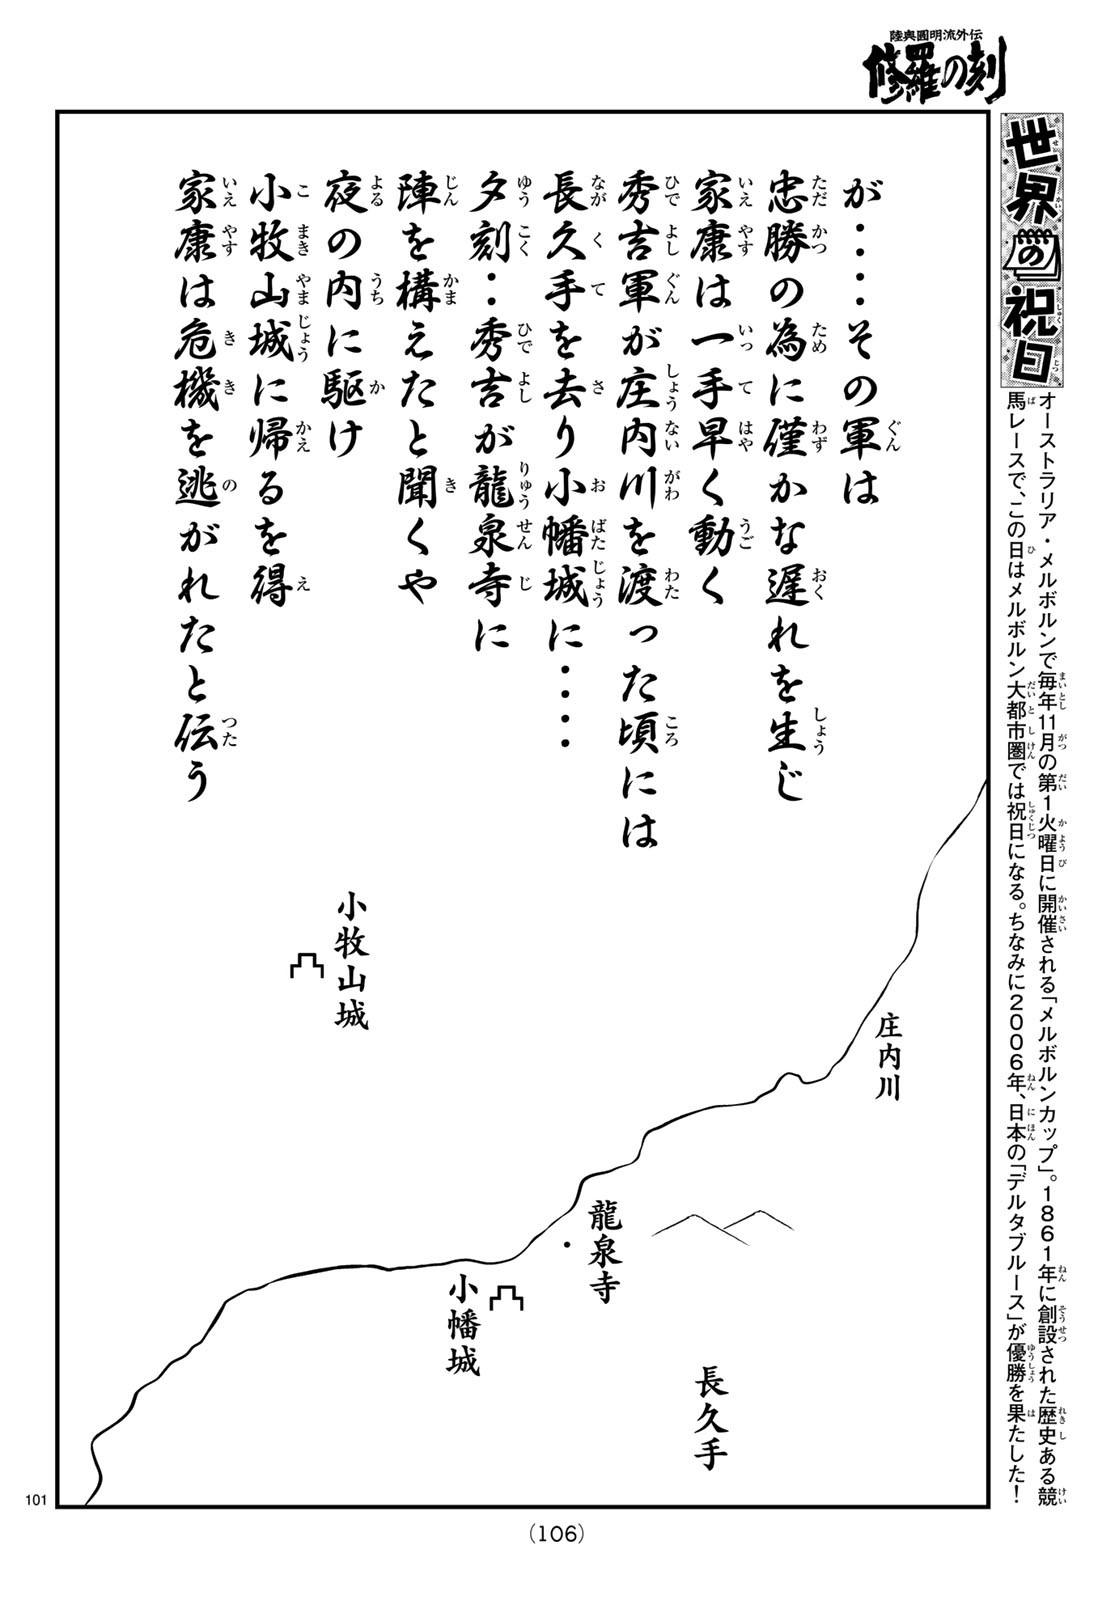 陸奥圓明流外伝
修羅の刻
世界の祝日
オーストラリア・メルボルンで毎年11月の第1火曜日に開催される「メルボルンカップ」。1861年に創設された歴史ある競
馬レースで、この日はメルボルン大都市圏では祝日になる。ちなみに2006年、日本の「デルタブルース」が優勝を果たした！
が・・・その軍は
忠勝の為に僅かな遅れを生じ
家康は一手早く動く
秀吉軍が庄内川を渡った頃には
長久手を去り小幡城に・・・・
夕刻・・秀吉が龍泉寺に
陣を構えたと聞くや
夜の内に駆け
小牧山城に帰るを得
家康は危機を逃がれたと伝う
小牧山城
庄内川
龍泉寺
小幡城
長久手
101
(106)